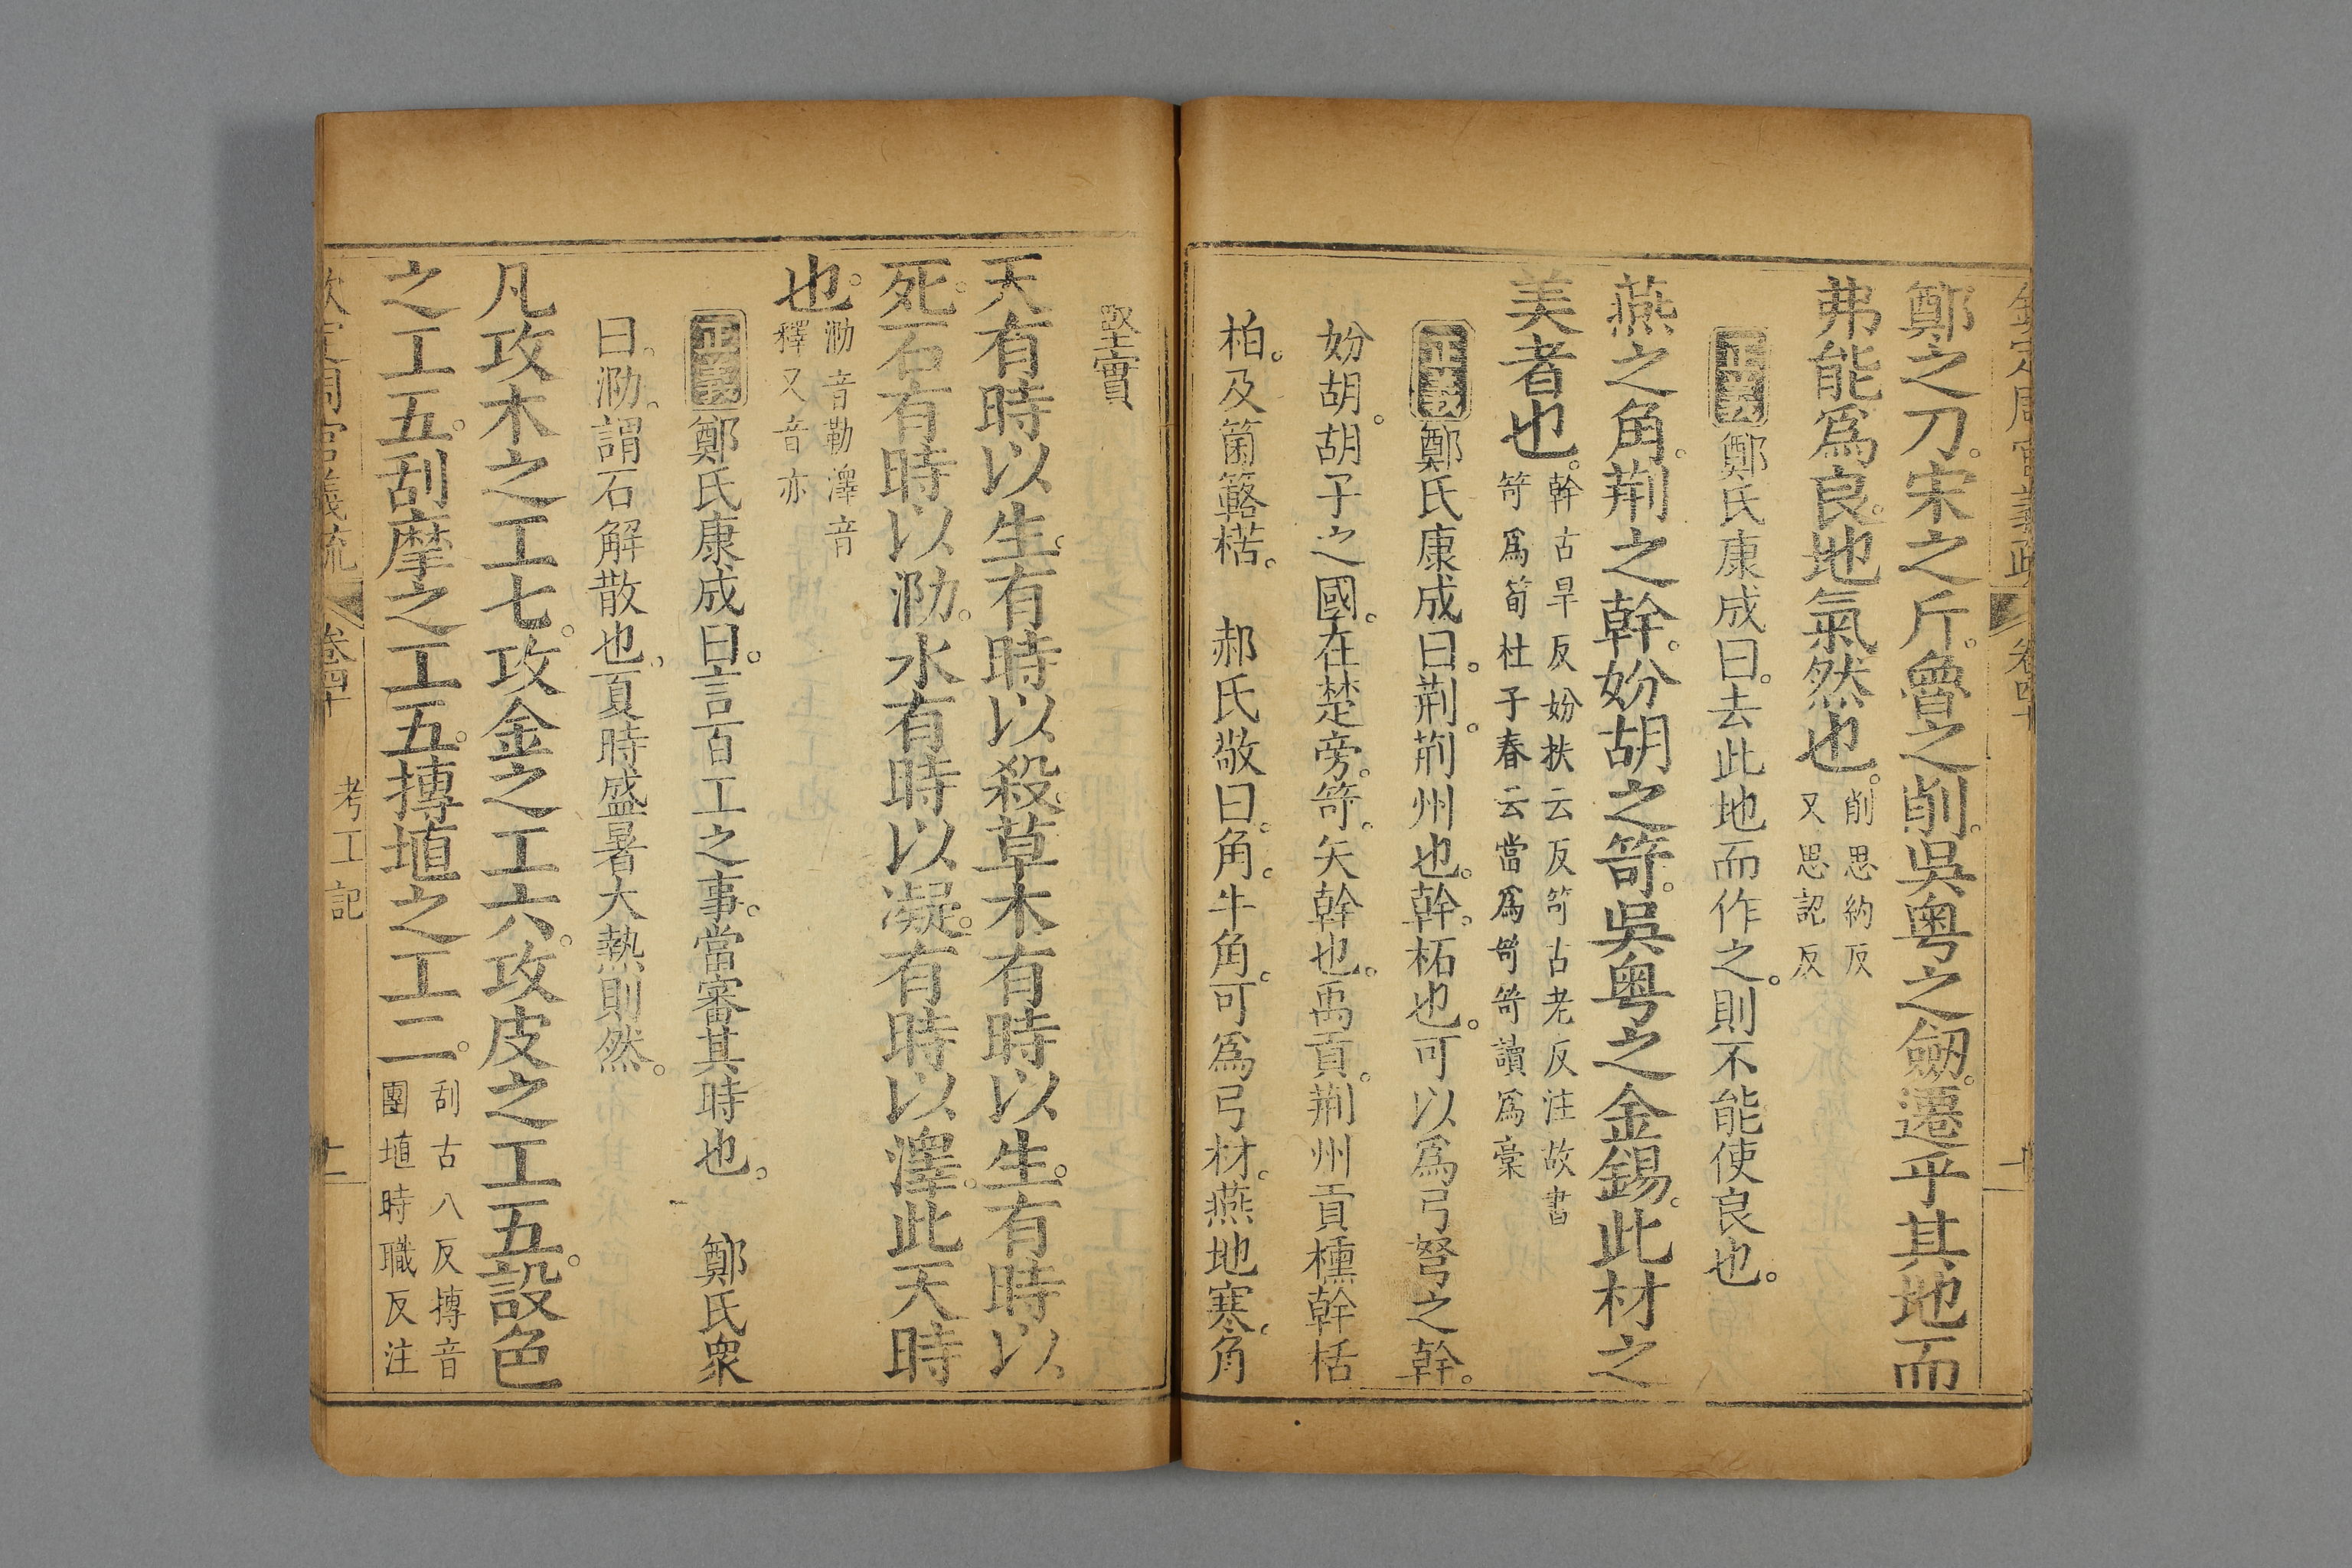 欽定周官義疏 卷四十
鄭之刀。宋之斤。魯之削。吳粵之劒。遷乎其地而
弗能爲良。地氣然也。削思約反又思詔反
正義鄭氏康成曰。去此地而作之。則不能使良也。
燕之角。荆之幹。妢胡之笴。吳粵之金錫。此材之
美者也。幹古旱反妢扶云反笴古老反注故書笴爲筍杜子春云當爲笴笴讀爲稾
正義鄭氏康成曰。荆。荆州也。幹。柘也。可以爲弓弩之幹。
妢胡。胡子之國。在楚旁。笴。矢幹也。禹貢。荆州貢櫄幹栝
柏。及箘簵楛。 郝氏敬曰。角。牛角。可爲弓材。燕地寒。角
堅實
天有時以生。有時以殺。草木有時以生。有時以
死。石有時以泐。水有時以凝。有時以澤。此天時
也。泐音勒澤音釋又音亦
正義鄭氏康成曰。言百工之事。當審其時也。 鄭氏衆
曰。泐。謂石解散也。夏時盛暑大熱則然。
凡攻木之工七。攻金之工六。攻皮之工五。設色
之工五。刮摩之工五。摶埴之工二。刮古八反摶音團埴時職反注
欽定周官義疏 卷四十 考工記 十一